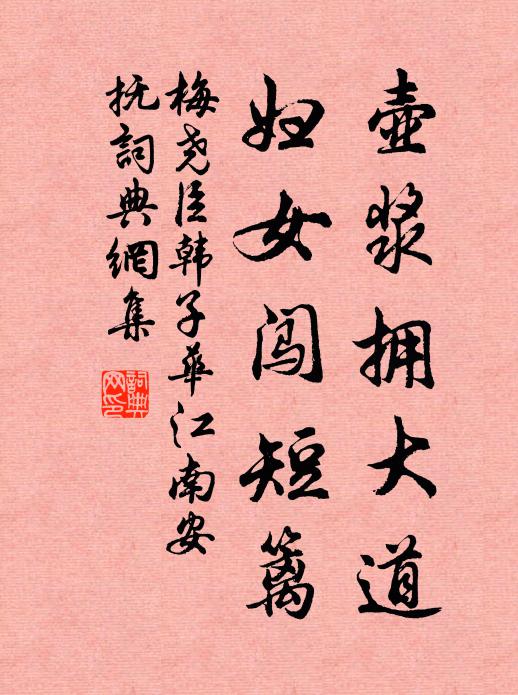 壷浆拥大道
妇女闯短篱
梅尧臣韩子华江南安
抚詞典網集
詞典
网印